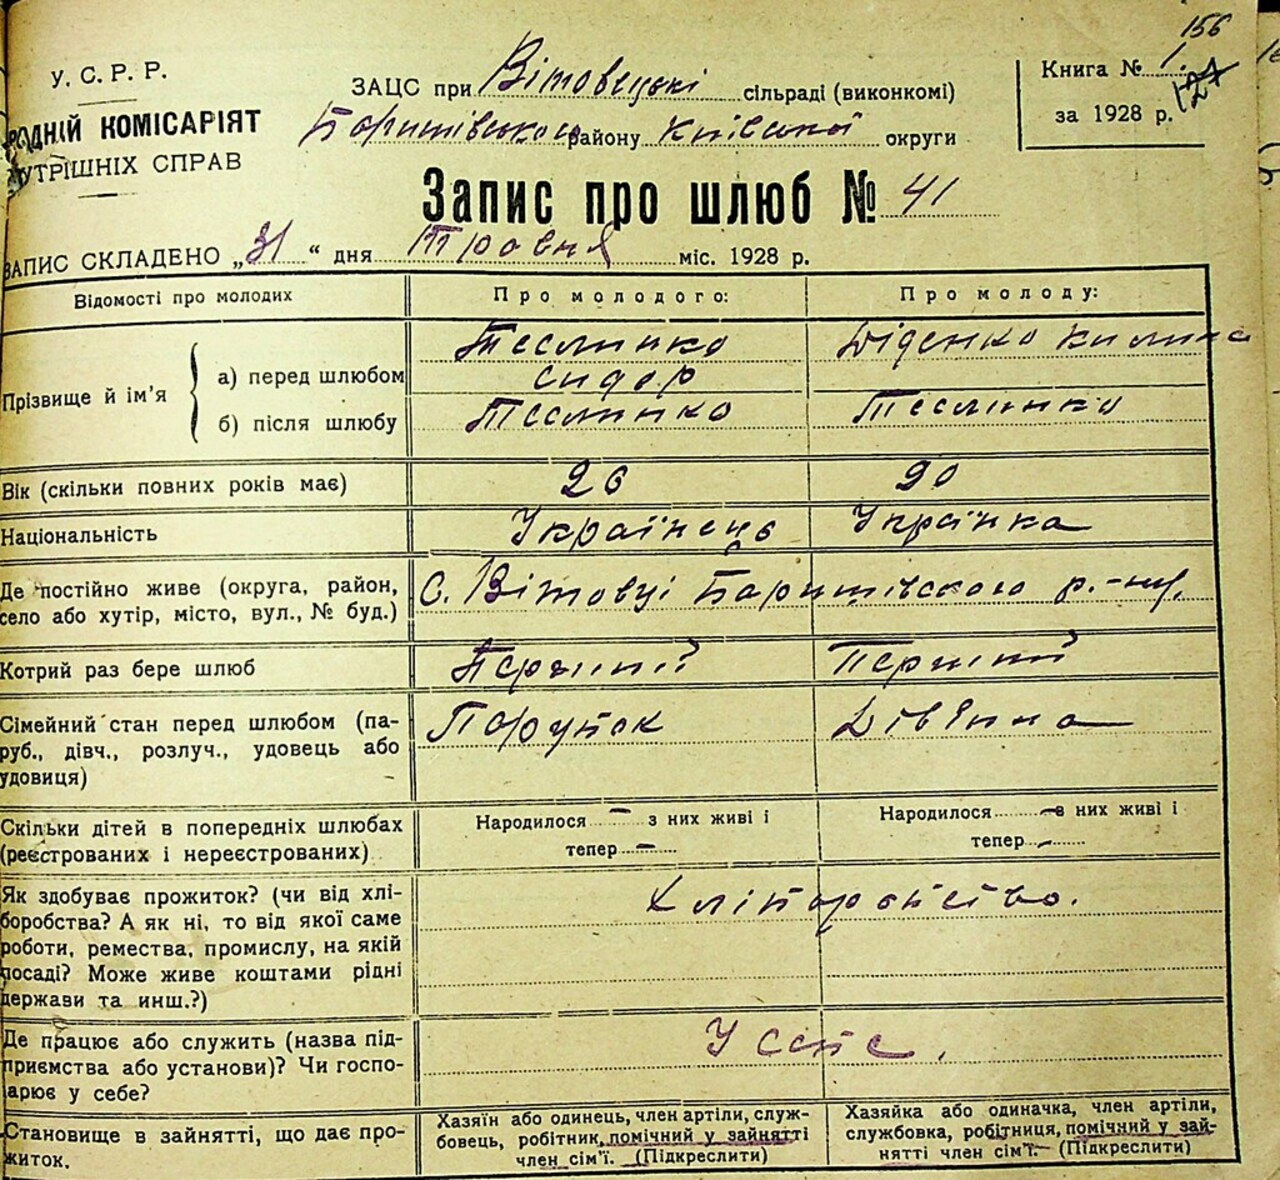 156
У. С. Р. Р.
РОДНІЙ КОМІСАРІЯТ
УТРІШНІХ СПРАВ
ЗАЦС при Вітовецькі сільраді (виконкомі)
Баришівського району Київської округи
Книга № 1.
за 1928 р. 127
Запис про шлюб № 41
ЗАПИС СКЛАДЕНО „31“ дня Травня міс. 1928 р.
Відомості про молодих
Про молодого:
Про молоду:
Прізвище й ім’я
а) перед шлюбом
Теслинко
Сидор
Діденко Килина
б) після шлюбу
Теслинко
Теслинко
Вік (скільки повних років має)
26
20
Національність
Українець
Українка
Де постійно живе (округа, район,
село або хутір, місто, вул., № буд.)
С. Вітовці Баришівского р.-ну.
Котрий раз бере шлюб
Перший
Перший
Сімейний стан перед шлюбом (па-
руб., дівч., розлуч., удовець або
удовиця)
Парубок
Дівчина
Скільки дітей в попередніх шлюбах
(реєстрованих і нереєстрованих)
Народилося — з них живі і
тепер —
Народилося — з них живі і
тепер —
Як здобуває прожиток? (чи від хлі-
боробства? А як ні, то від якої саме
роботи, ремества, промислу, на якій
посаді? Може живе коштами рідні
держави та инш.?)
Хліборобство.
Де працює або служить (назва під-
приємства або установи)? Чи госпо-
дарює у себе?
У себе.
Становище в зайнятті, що дає про-
житок.
Хазяїн або одинець, член артіли, служ-
бовець, робітник, помічний у зайнятті
член сім’ї. (Підкреслити)
Хазяйка або одиначка, член артіли,
службовка, робітниця, помічний у зай-
нятті член сім’ї. (Підкреслити)